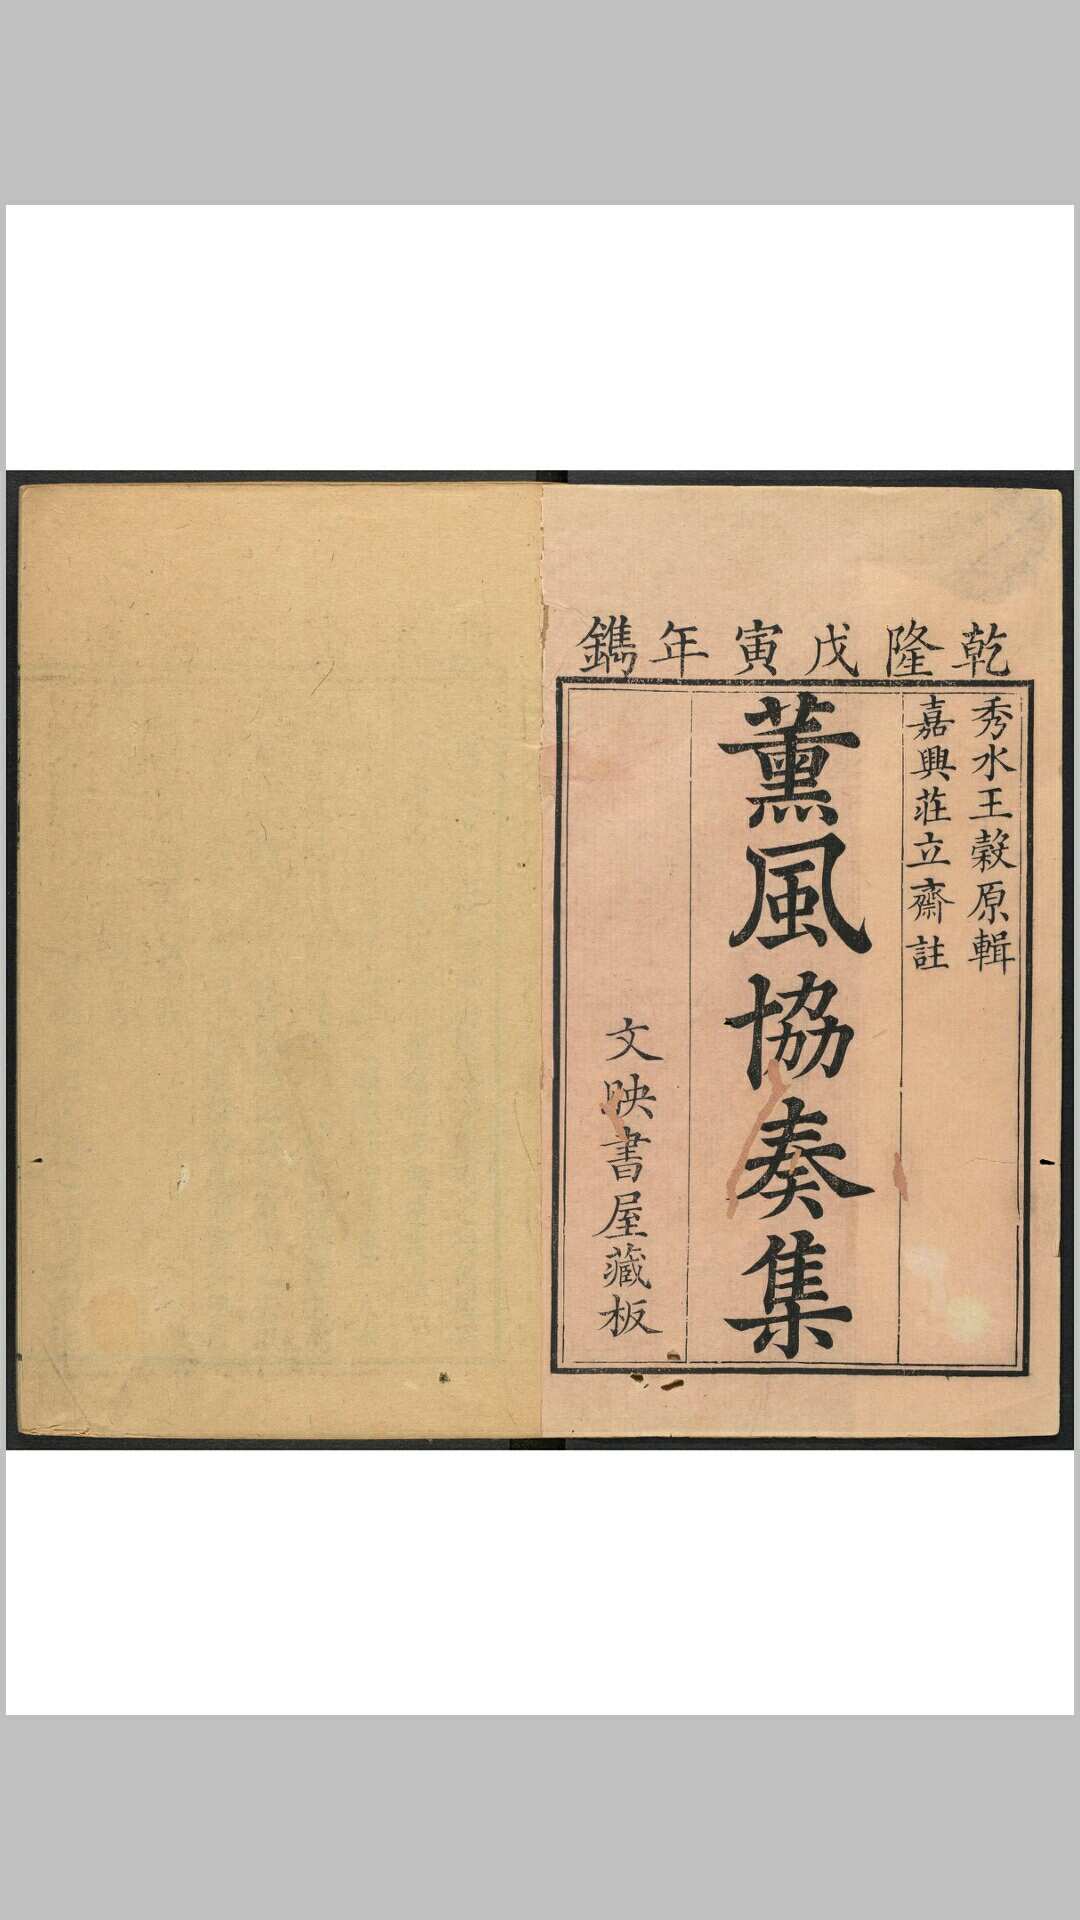 乾隆戊寅年鐫
秀水王穀原輯
嘉興莊立齋註
薰風協奏集
文映書屋藏板